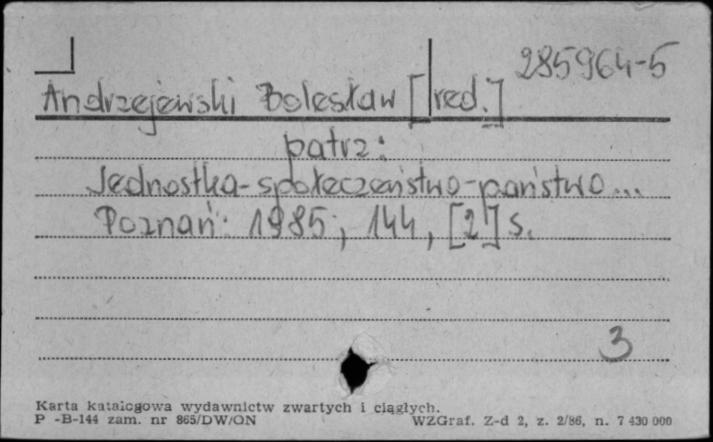 285964-5
Andrzejewski Bolesław [red.]
patrz:
Jednostka-społeczeństwo-państwo...
Poznań: 1985, 144, [2] s.
3
Karta katalogowa wydawnictw zwartych i ciągłych.
P -B-144 zam. nr 865/DW/ON WZGraf. Z-d 2, z. 2/86, n. 7 430 000